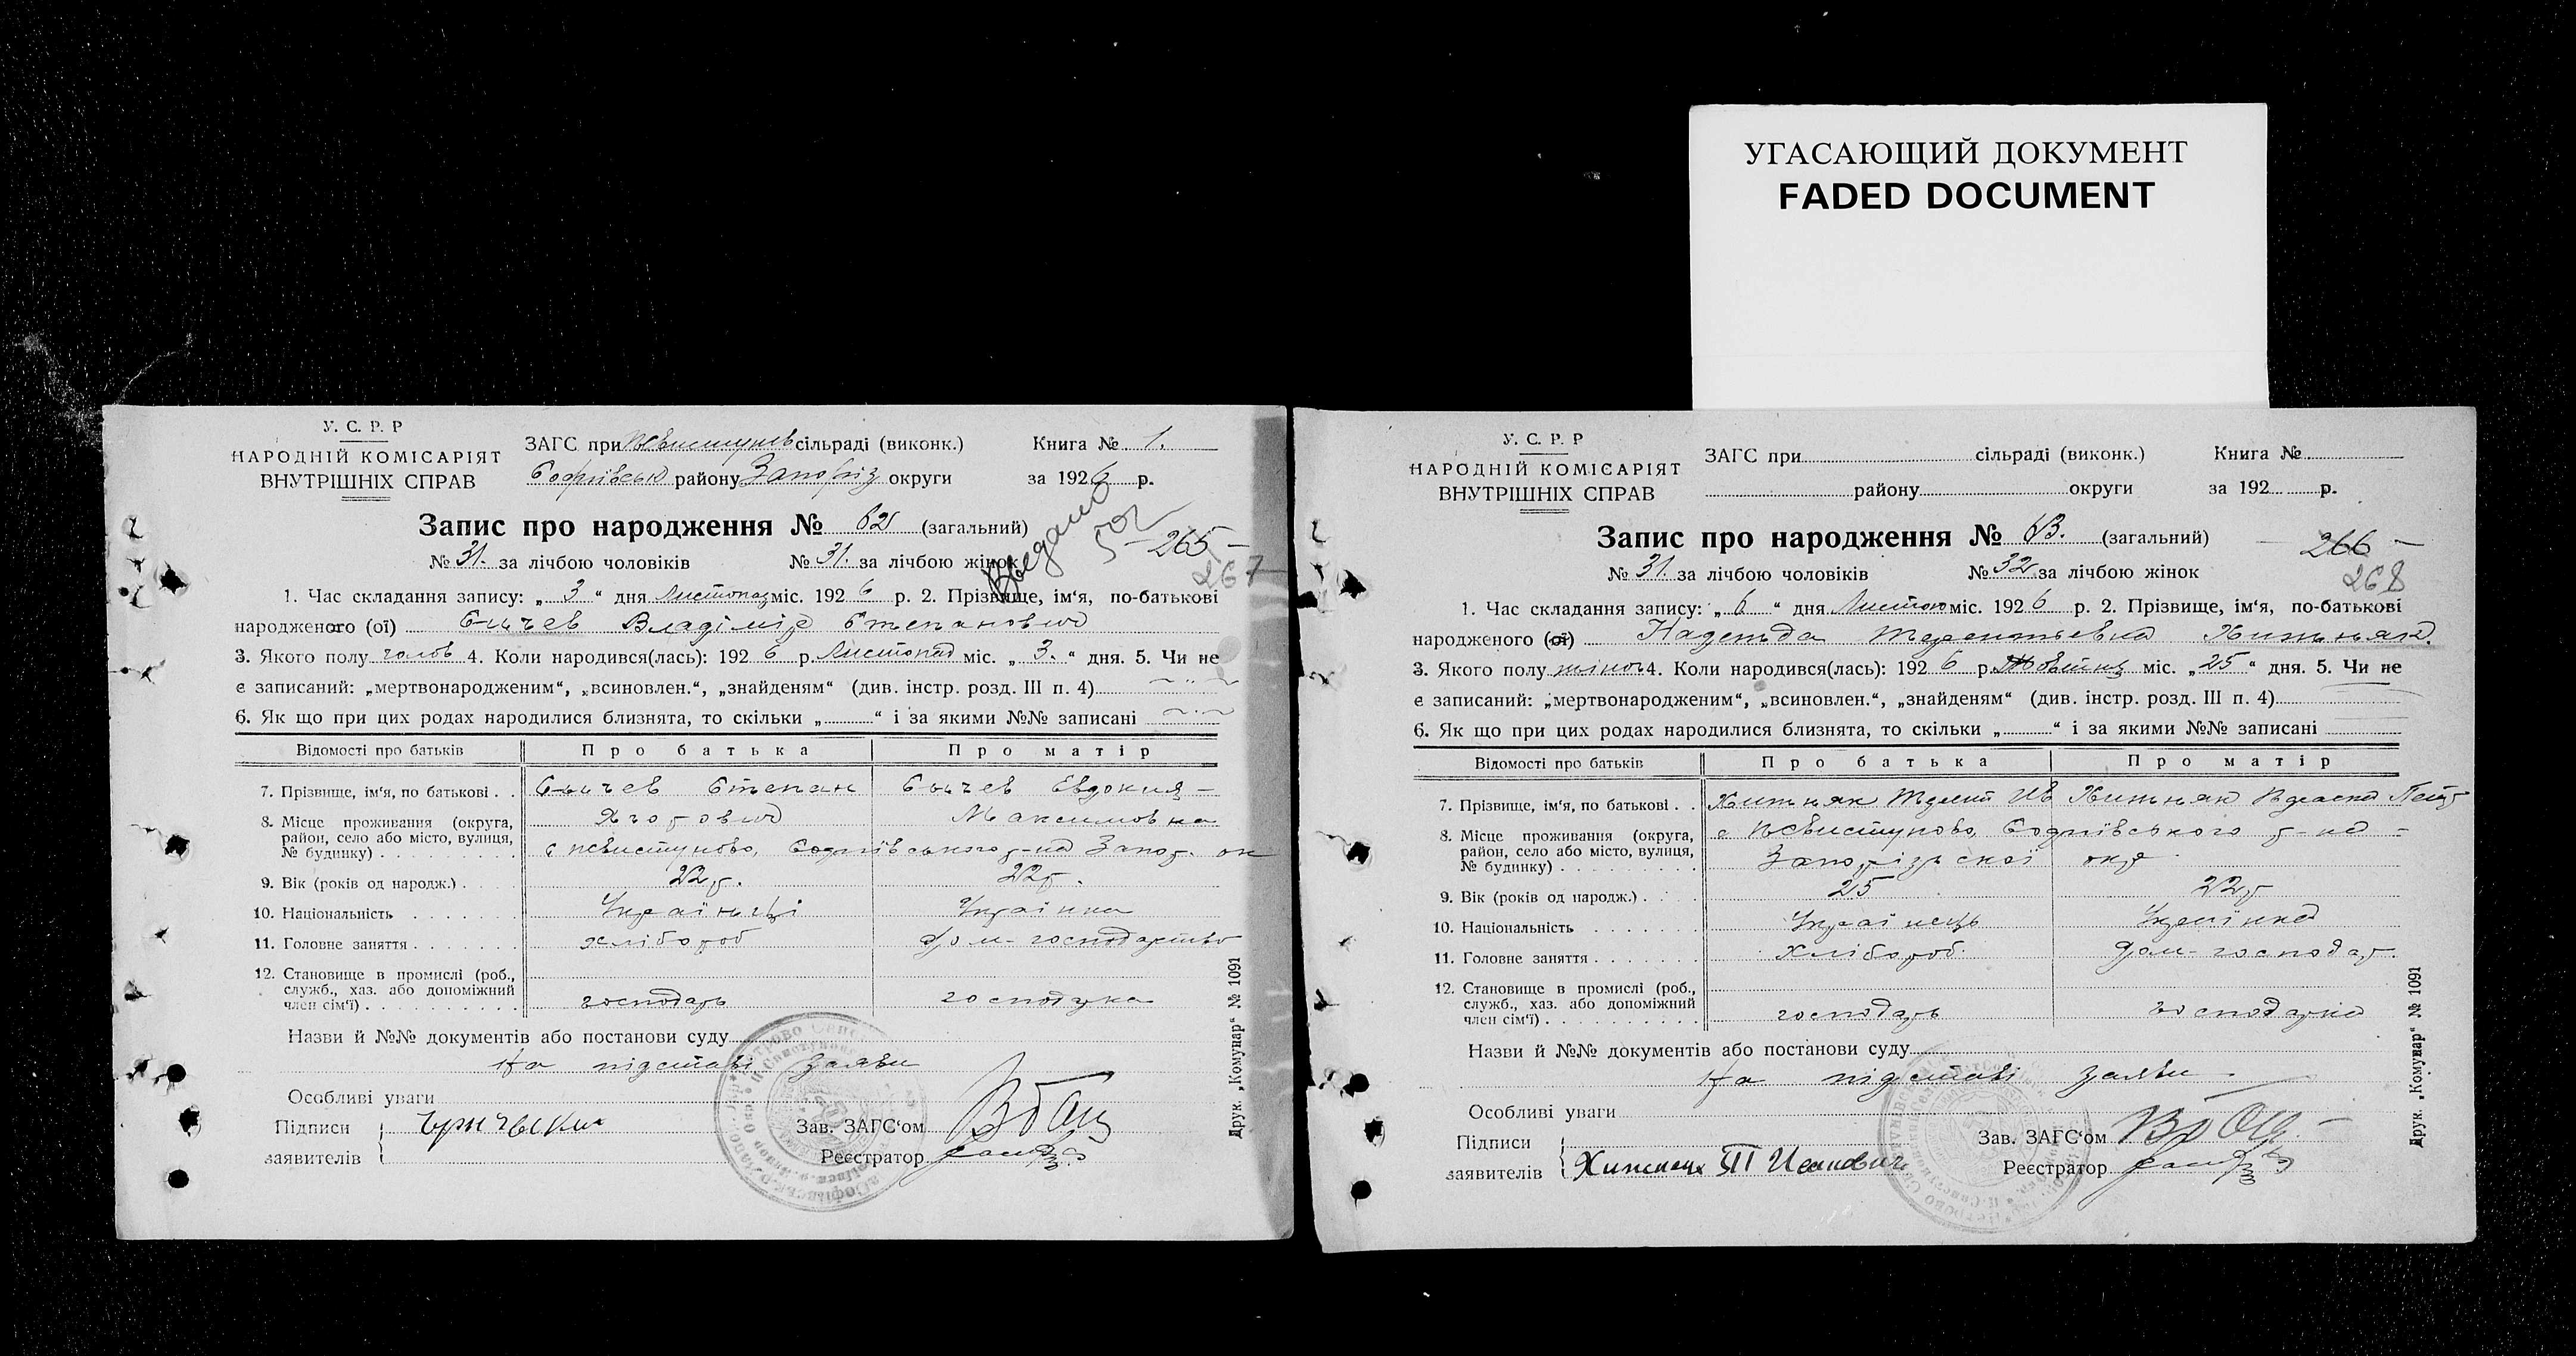 УГАСАЮЩИЙ ДОКУМЕНТ
FADED DOCUMENT
У. С. Р. Р
НАРОДНІЙ КОМІСАРІЯТ
ВНУТРІШНІХ СПРАВ
ЗАГС при сільраді (виконк.) Книга № 1.
Софіївськ району Запоріз округи за 1926 р.
Запис про народження № 62 (загальний)
№ 31. за лічбою чоловіків № 31. за лічбою жінок
Введено
502
- 265 -
267
1. Час складання запису: „ 3 “ дня Листопад міс. 192 6 р. 2. Прізвище, ім‘я, по-батькові
народженого (ої) Сычев Владімір Степанович
3. Якого полу чолов 4. Коли народився(лась): 192 6 р. Листопад міс. „ 3. “ дня. 5. Чи не
є записаний: „мертвонародженим“, „всиновлен.“, „знайденям“ (див. інстр. розд. III п. 4)
6. Як що при цих родах народилися близнята, то скільки „ “ і за якими №№ записані
Відомості про батьків Про батька Про матір
7. Прізвище, ім‘я, по батькові . . Сычев Степан Сычев Евдокия -
Максимовна
8. Місце проживання (округа, район, село або місто, вулиця, № будинку) с Софиівського р-на Запор. ок
9. Вік (років од народж.) . 22 р. 22 р.
10. Національність Українці Українка
11. Головне заняття хлібороб дом-господарство
12. Становище в промислі (роб., служб., хаз. або допоміжний член сім‘ї) господарь господарка
Назви й №№ документів або постанови суду
На підставі заяви
Особливі уваги
Підписи
заявителів
Зав. ЗАГС‘ом
Реєстратор
Друк. „Комунар“ № 1091
У. С. Р. Р
НАРОДНІЙ КОМІСАРІЯТ
ВНУТРІШНІХ СПРАВ
ЗАГС при сільраді (виконк.) Книга №
району округи за 192 р.
Запис про народження № 63. (загальний)
№ 31. за лічбою чоловіків № 32 за лічбою жінок
- 266 -
268
1. Час складання запису: „ 6 “ дня Листоп міс. 192 6 р. 2. Прізвище, ім‘я, по-батькові
народженого (ої) Надежда Терентьевна Хижняк.
3. Якого полу жіноч 4. Коли народився(лась): 192 6 р. Жовтня міс. „ 25 “ дня. 5. Чи не
є записаний: „мертвонародженим“, „всиновлен.“, „знайденям“ (див. інстр. розд. III п. 4)
6. Як що при цих родах народилися близнята, то скільки „ “ і за якими №№ записані
Відомості про батьків Про батька Про матір
7. Прізвище, ім‘я, по батькові . . Хижняк Ив Хижняк
8. Місце проживання (округа, район, село або місто, вулиця, № будинку) с Софиівського р-на -
Запорізьскої окр.
9. Вік (років од народж.) . 25 22 р
10. Національність Українець Українка
11. Головне заняття Хлібороб. дом-господар.
12. Становище в промислі (роб., служб., хаз. або допоміжний член сім‘ї) господарь господарка
Назви й №№ документів або постанови суду
На підставі заяви
Особливі уваги
Підписи
заявителів Хижняк Т Иванович
Зав. ЗАГС‘ом
Реєстратор
Друк. „Комунар“ № 1091